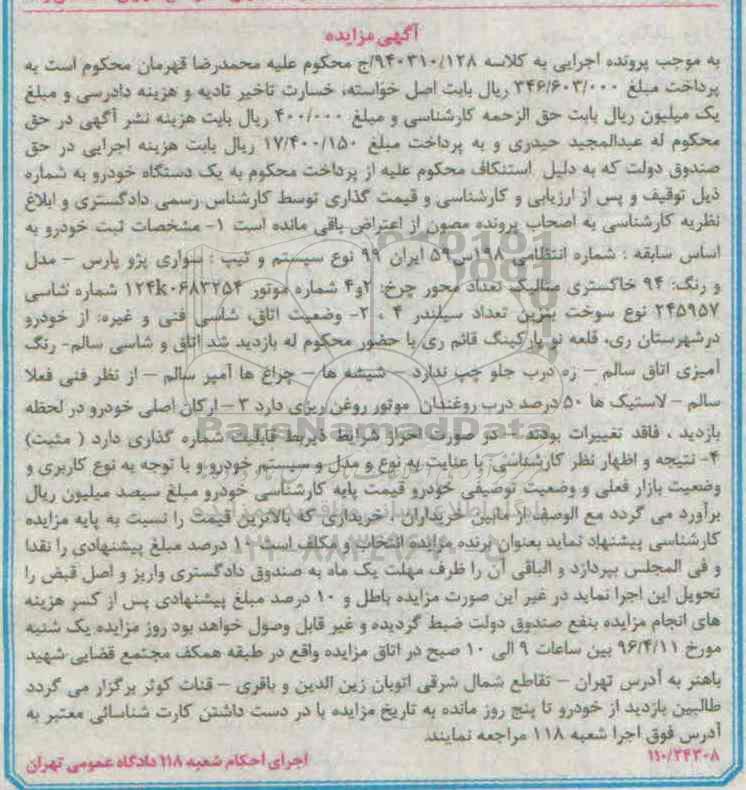 آگهی مزایده
به موجب پرونده اجرایی به کلاسه ۹۴۰۳۱۰/۱۲۸/ج محکوم علیه محمدرضا قهرمان محکوم است به
پرداخت مبلغ ۳۴۶/۶۰۳/۰۰۰ ریال بابت اصل خواسته، خسارت تاخیر تادیه و هزینه دادرسی و مبلغ
یک میلیون ریال بابت حق الزحمه کارشناسی و مبلغ ۴۰۰/۰۰۰ ریال بابت هزینه نشر آگهی در حق
محکوم له عبدالمجید حیدری و به پرداخت مبلغ ۱۷/۴۰۰/۱۵۰ ریال بابت هزینه اجرایی در حق
صندوق دولت که به دلیل استنکاف محکوم علیه از پرداخت محکوم به یک دستگاه خودرو به شماره
ذیل توقیف و پس از ارزیابی و کارشناسی و قیمت گذاری توسط کارشناس رسمی دادگستری و ابلاغ
نظریه کارشناسی به اصحاب پرونده مصون از اعتراض باقی مانده است ۱- مشخصات ثبت خودرو به
اساس سابقه : شماره انتظامی ۱۹۸س۵۹ ایران ۹۹ نوع سیستم و تیپ : سواری پژو پارس – مدل
و رنگ: ۹۴ خاکستری متالیک تعداد محور چرخ: ۲و۴ شماره موتور ۱۲۴k۰۶۸۳۲۵۴ شماره شاسی
۲۴۵۹۵۷ نوع سوخت بنزین تعداد سیلندر ۴ ، ۲- وضعیت اتاق، شاسی فنی و غیره: از خودرو
درشهرستان ری، قلعه نو پارکینگ قائم ری با حضور محکوم له بازدید شد اتاق و شاسی سالم- رنگ
آمیزی اتاق سالم – زه درب جلو چپ ندارد – شیشه ها – چراغ ها آمپر سالم – از نظر فنی فعلا
سالم – لاستیک ها ۵۰ درصد درب روغندان موتور روغن ریزی دارد ۳ – ارکان اصلی خودرو در لحظه
بازدید ، فاقد تغییرات بودند – در صورت احراز شرایط ذیربط قابلیت شماره گذاری دارد ( مثبت)
۴- نتیجه و اظهار نظر کارشناسی: با عنایت به نوع و مدل و سیستم خودرو و با توجه به نوع کاربری و
وضعیت بازار فعلی و وضعیت توصیفی خودرو قیمت پایه کارشناسی خودرو مبلغ سیصد میلیون ریال
برآورد می گردد مع الوصف از مابین خریداران ، خریداری که بالاترین قیمت را نسبت به پایه مزایده
کارشناسی پیشنهاد نماید بعنوان برنده مزایده انتخاب و مکلف است ۱۰ درصد مبلغ پیشنهادی را نقدا
و فی المجلس بپردازد و الباقی آن را ظرف مهلت یک ماه به صندوق دادگستری واریز و اصل قبض را
تحویل این اجرا نماید در غیر این صورت مزایده باطل و ۱۰ درصد مبلغ پیشنهادی پس از کسر هزینه
های انجام مزایده بنفع صندوق دولت ضبط گردیده و غیر قابل وصول خواهد بود روز مزایده یک شنبه
مورخ ۹۶/۴/۱۱ بین ساعات ۹ الی ۱۰ صبح در اتاق مزایده واقع در طبقه همکف مجتمع قضایی شهید
باهنر به آدرس تهران – تقاطع شمال شرقی اتوبان زین الدین و باقری – قنات کوثر برگزار می گردد
طالبین بازدید از خودرو تا پنج روز مانده به تاریخ مزایده با در دست داشتن کارت شناسائی معتبر به
آدرس فوق اجرا شعبه ۱۱۸ مراجعه نمایند
۱۱۰/۲۴۳۰۸ اجرای احکام شعبه ۱۱۸ دادگاه عمومی تهران
ParsNamadData